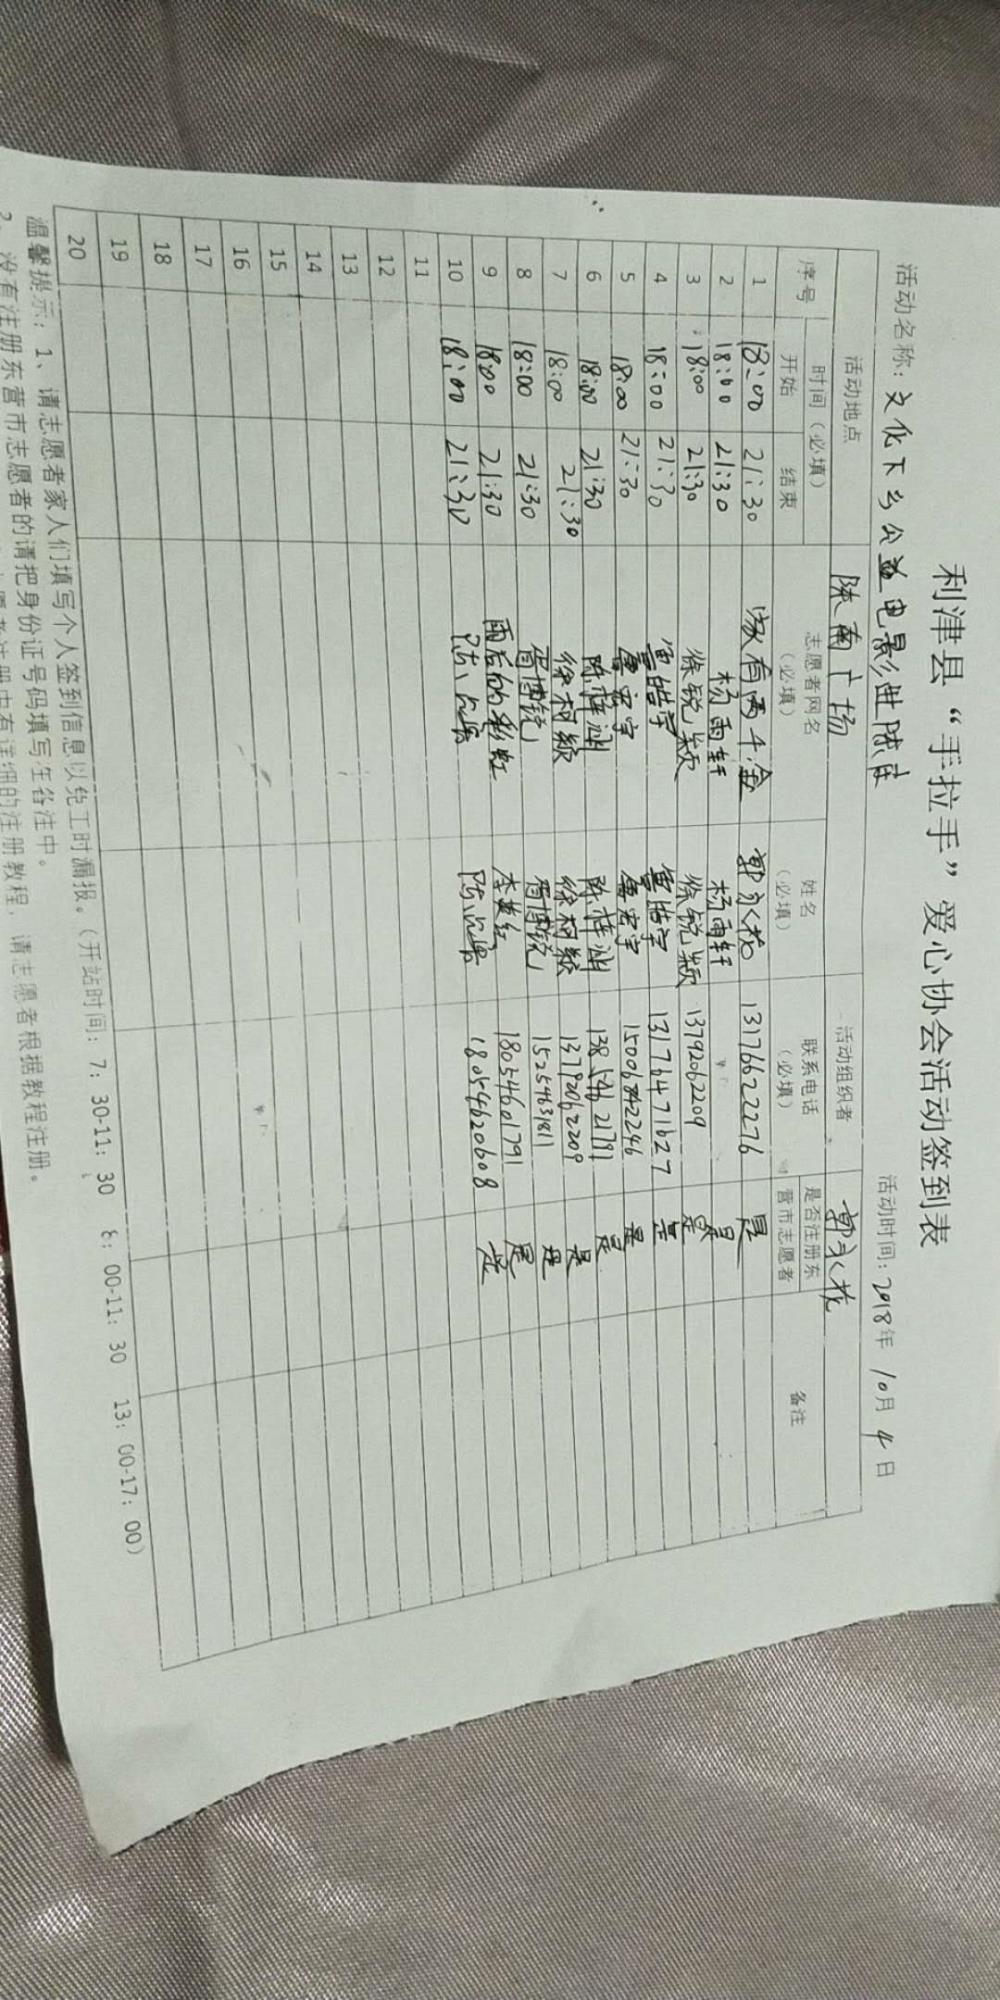 利津县“手拉手”爱心协会活动签到表
活动名称：文化下乡公益电影进陈庄 活动时间：2018年10月4日
活动地点 陈南广场 活动组织者
序号 时间（必填） 志愿者网名（必填） 姓名（必填） 联系电话（必填） 是否注册东营市志愿者 备注
开始 结束
1 18:00 21:30 家有两千金 13176622276 是
2 18:00 21:30 杨雨轩 杨雨轩 是
3 18:00 21:30 徐锐颖 徐锐颖 13792062209 是
4 18:00 21:30 13176471627 是
5 18:00 21:30 15006842246 是
6 18:00 21:30 13854621791 是
7 18:00 21:30 徐柯颖 徐柯颖 13792062209 是
8 18:00 21:30 胥博锐 胥博锐 15254631811 是
9 18:00 21:30 雨后的彩虹 18054601791 是
10 18:00 21:30 18054620608 是
11
12
13
14
15
16
17
18
19
20
温馨提示：1、请志愿者家人们填写个人签到信息以免工时漏报。（开站时间：7：30-11：30 8：00-11：30 13：00-17：00）
2、没有注册东营市志愿者的请把身份证号码填写在备注中。
详细的注册教程，请志愿者根据教程注册。